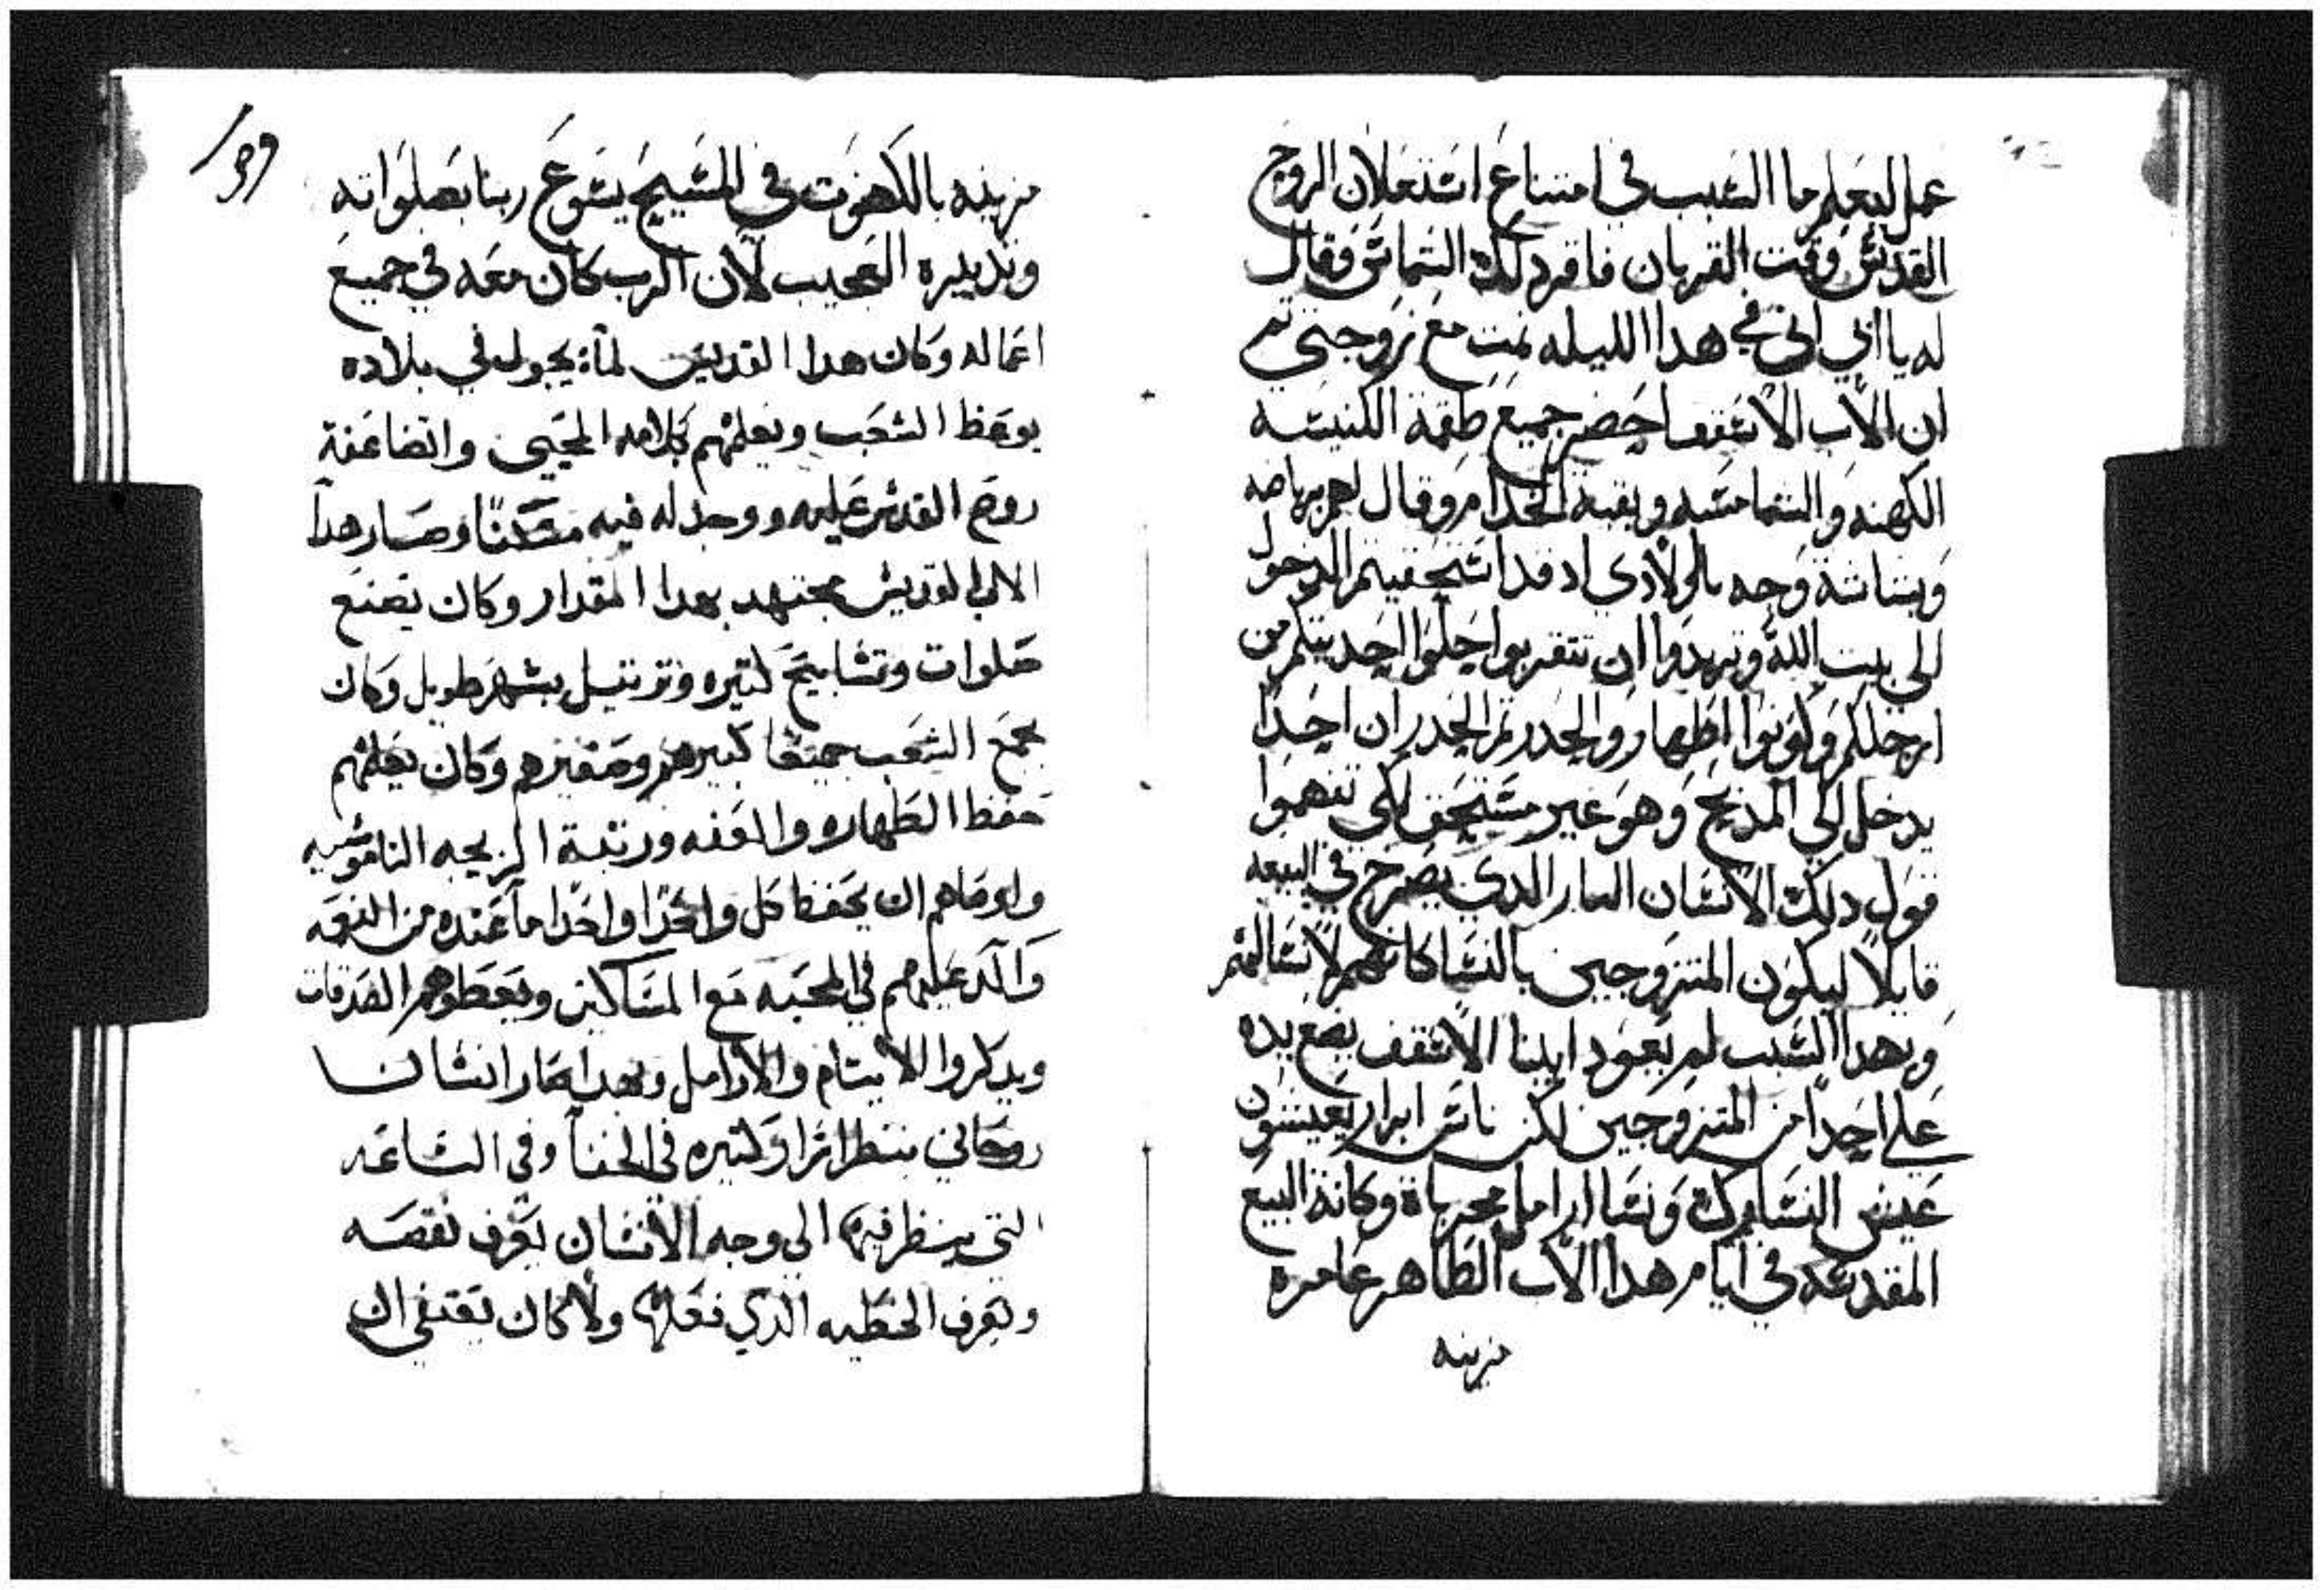 عمل ليعلم ما السبب في امتناع استعلان الروح
القدس وقت القربان فاقر دلك الشماس وقال
له يا ابي اني في هدا الليله نمت مع زوجتي تم
ان الاب الاسقف احضر جميع طقمة الكنيسه
الكهنه والشمامسه وبقية الخدام وقال لهم
وبشاشة وجه يا اولادي اد قد استحقيتم الدخول
الى بيت الله وتريدوا ان تتقربوا حلوا احديتكم من
ارجلكم وكونوا اطهار والحدر تم الحدر ان احدا
يدخل الى المدبح وهو غير مستحق لكي تفهموا
قول دلك الانسان البار الدي يصرخ في البيعه
قايلا ليكون المتزوجين بالنسا كانهم لا نسا لهم
وبهدا السبب لم يعود ابينا الاسقف يضع يده
على احدا من المتزوجين لكن ناس ابرار يعيشون
عيش النساك ونسا ارامل وكانة البيع
المقدسه في ايام هدا الاب الطاهر عامره
مزينه
139
مزينه بالكهنوت في المسيح يسوع ربنا بصلواته
وتدبيره العجيب لان الرب كان معه في جميع
اعماله وكان هدا القديس لما يجول في بلاده
يوعظ الشعب ويعلمهم كلامه المحيي
روح القدس عليه ووجد له فيه مسكنا وصار هدا
الاب القديس مجتهد بهدا المقدار وكان يصنع
صلوات وتسابيح كتيره وترتيل بسهر طويل وكان
يجمع الشعب جميعا كبيرهم وصغيرهم وكان يعلمهم
حفظ الطهاره والعفه ورتبة الزيجه الناموسيه
واوصاهم ان يحفظ كل واحدا واحدا ما عنده من النعمه
واكد عليهم في المحبه مع المساكين ويعطوهم الصدقات
ويدكروا الايتام والارامل وبهدا صار انسانا
روحاني ينظر اسرار كتيره في الخفا وفي الساعه
التي ينظر فيها الى وجه الانسان يعرف نقصه
ويعرف الخطيه الدي فعلها ولا كان يقتفي ان